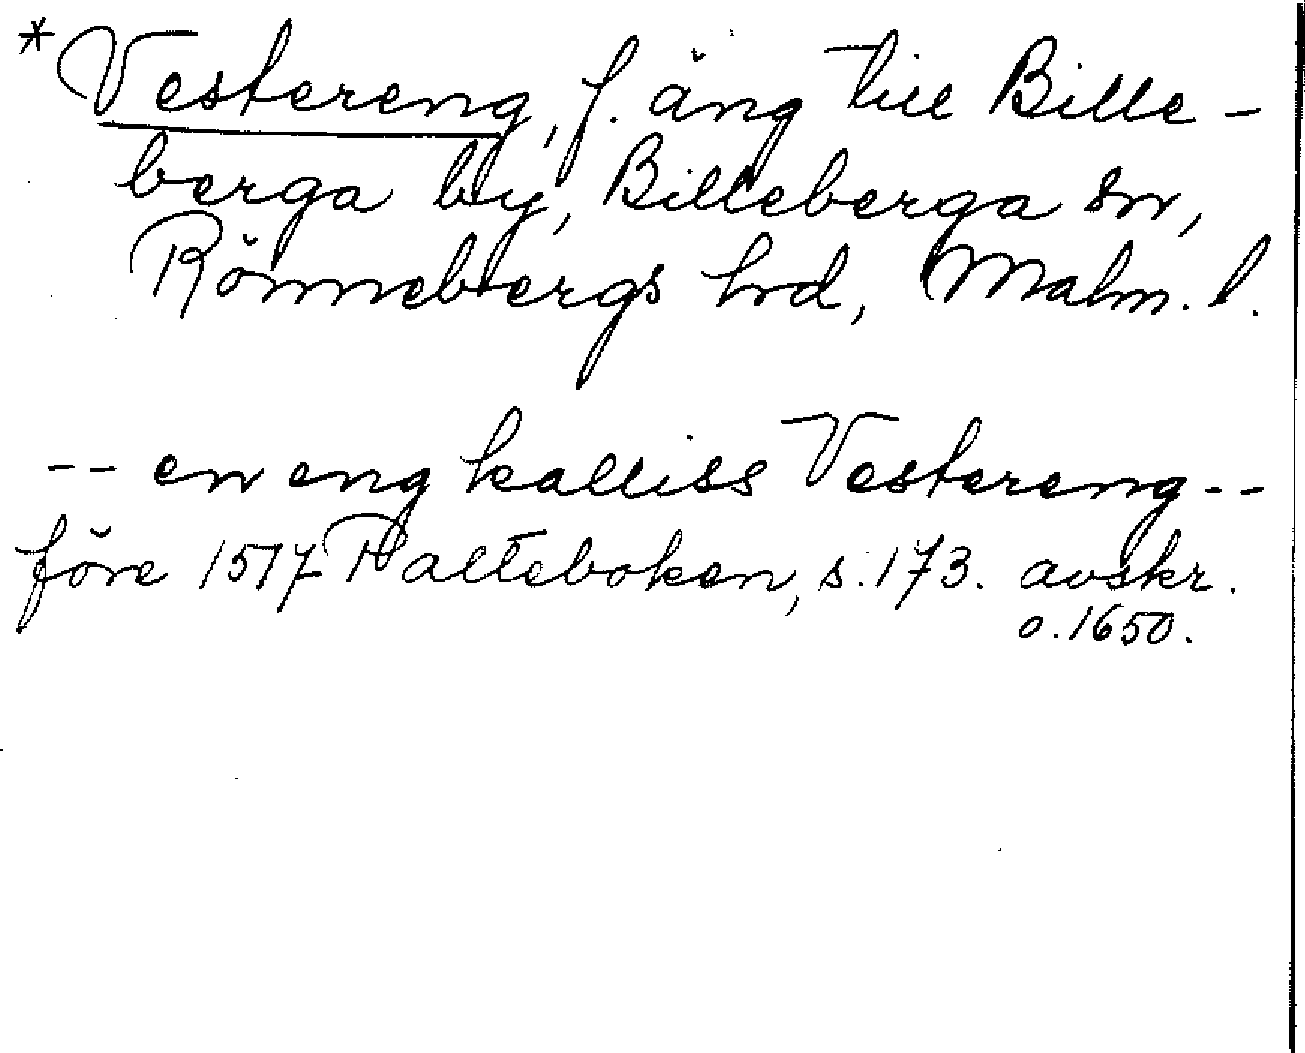 *Vestereng, f. äng till Bille-
berga by, Billeberga sn,
Rönnebergs hd, Malm. l.
-- en eng kalliss Vestereng --
före 1517 Palteboken, s. 173. avskr.
o. 1650.